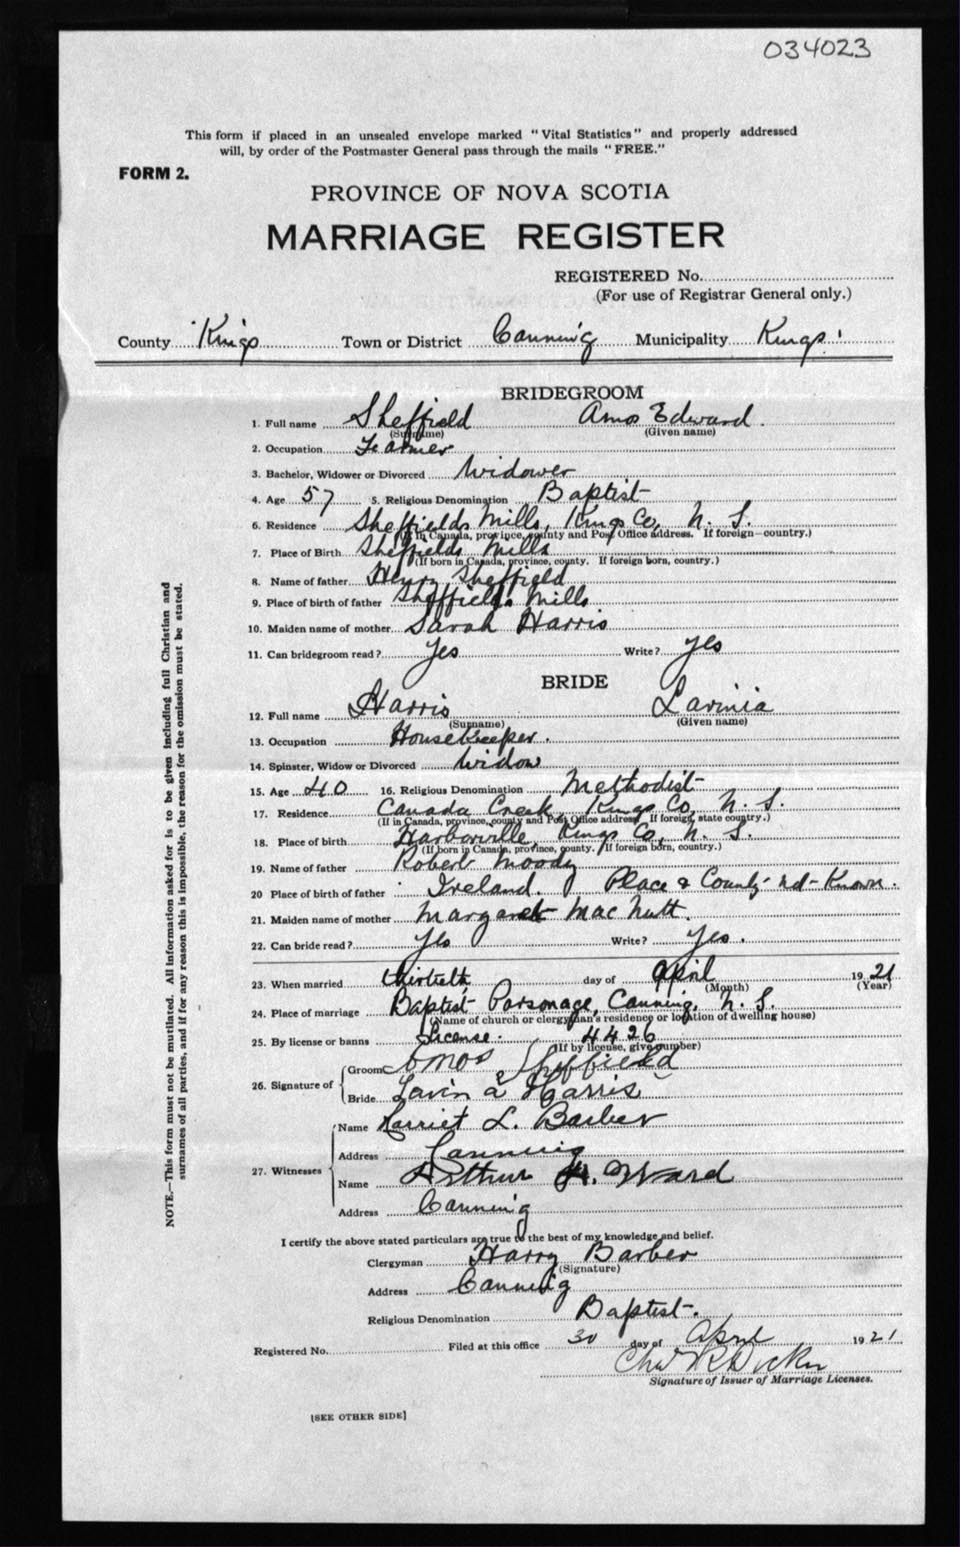 034023
This form if placed in an unsealed envelope marked "Vital Statistics" and properly addressed
will, by order of the Postmaster General pass through the mails "FREE."
FORM 2.
PROVINCE OF NOVA SCOTIA
MARRIAGE REGISTER
REGISTERED No.
(For use of Registrar General only.)
County Kings Town or District Canning Municipality Kings
BRIDEGROOM
1. Full name Sheffield Amos Edward.
(Surname) (Given name)
2. Occupation Farmer
3. Bachelor, Widower or Divorced Widower
4. Age 57 5. Religious Denomination Baptist
6. Residence Sheffields Mills, Kings Co, N. S.
(If in Canada, province, county and Post Office address. If foreign—country.)
7. Place of Birth Sheffields Mills
(If born in Canada, province, county. If foreign born, country.)
8. Name of father Henry Sheffield
9. Place of birth of father Sheffields Mills
10. Maiden name of mother Sarah Harris
11. Can bridegroom read? Yes Write? Yes
BRIDE
12. Full name Harris Lavinia
(Surname) (Given name)
13. Occupation Housekeeper.
14. Spinster, Widow or Divorced Widow
15. Age 40 16. Religious Denomination Methodist
17. Residence Canada Creek, Kings Co, N. S.
(If in Canada, province, county and Post Office address. If foreign, state country.)
18. Place of birth Harborville, Kings Co, N. S.
(If born in Canada, province, county. If foreign born, country.)
19. Name of father Robert Moody
20 Place of birth of father Ireland. Place & County not Known.
21. Maiden name of mother Margaret MacNutt.
22. Can bride read? Yes Write? Yes.
23. When married thirtieth day of April 1921
(Month) (Year)
24. Place of marriage Baptist Parsonage, Canning, N. S.
(Name of church or clergyman's residence or location of dwelling house)
25. By license or banns License. 4426
(If by license, give number)
26. Signature of Groom Amos Sheffield
Bride Lavina Harris
27. Witnesses Name Harriet L. Barber
Address Canning
Name Arthur H. Ward
Address Canning
I certify the above stated particulars are true to the best of my knowledge and belief.
Clergyman Harry Barber
(Signature)
Address Canning
Religious Denomination Baptist.
Registered No. Filed at this office 30 day of April 1921
Chas
Signature of Issuer of Marriage Licenses.
[SEE OTHER SIDE]
NOTE.—This form must not be mutilated. All information asked for is to be given including full Christian and
surnames of all parties, and if for any reason this is impossible, the reason for the omission must be stated.